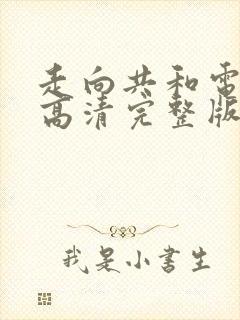 走向共和电
高清完整版
我是小书生